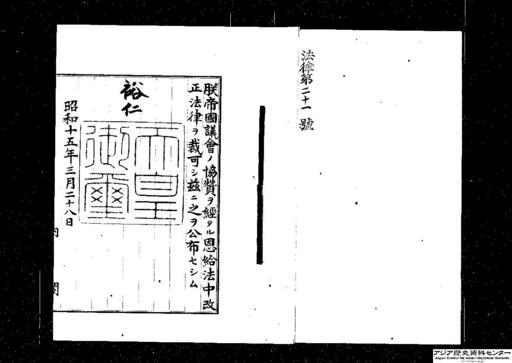 法律第二十一號
朕帝國議會ノ協贊ヲ經タル恩給法中改
正法律ヲ裁可シ茲ニ之ヲ公布セシム
裕仁
天皇御璽
昭和十五年三月二十八日
内閣
アジア歴史資料センター
Japan Center for Asian Historical Records